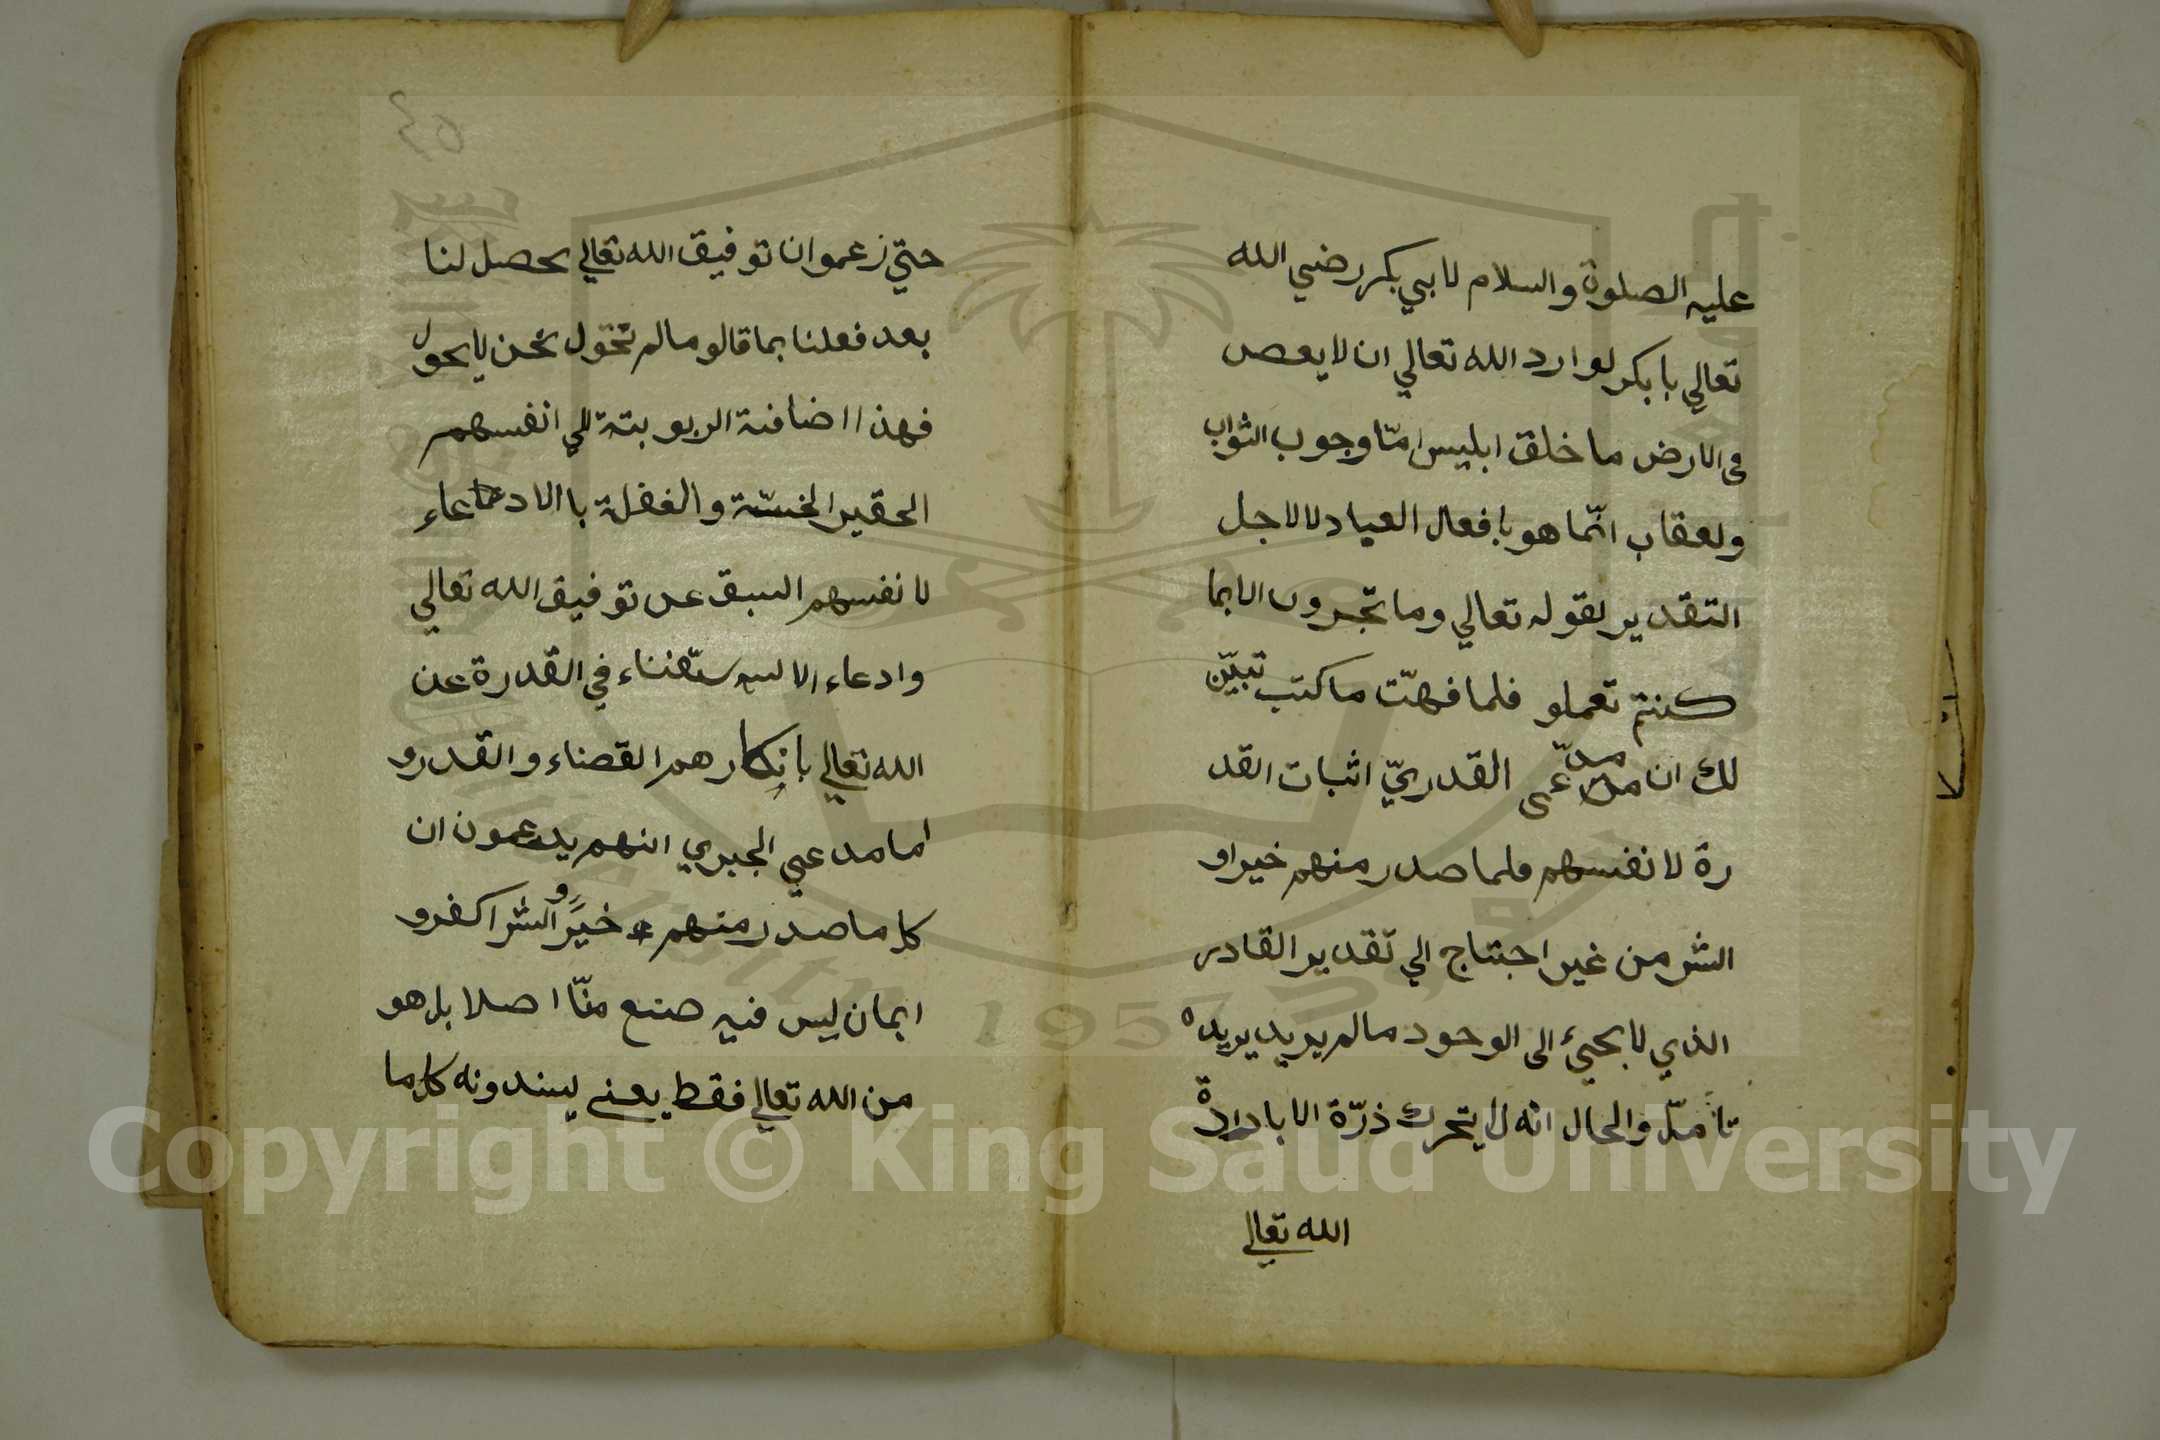 عليه الصلوة والسلام لابي بكر رضي الله
تعالي بابكر لو ارد الله تعالي ان لا يعص
في الارض ما خلق ابليس امّا وجوب الثواب
ولعقاب انّما هو بافعال العباد لا لاجل
التقدير لقوله تعالي وما تجرون الا بما
كنتم تعملو فلما فهمّت ما كتب تبيّن
لك ان مدّعى القدريّ اثبات القد
رة لانفسهم فلما صدر منهم خيرا و
الشر من غير احتتاج الي تقدير القادر
الذي لا يحيئ الى الوحود ما لم يريد يريده
تأمّل والحال انه لا يتحرك ذرّة الا بارادة
الله تعالي
٥٤
حتي زعموا ان توفيق الله تعالي يحصل لنا
بعد فعلنا بما قالو مالم تحول نحن لا يحول
فهذا اضافة الربوبتة الي انفسهم
الحقير الخسّة والغفلة با الادعاء
لانفسهم السبق عن توفيق الله تعالي
وادعاء الا ستغناء في القدرة عن
الله تعالي بانكارهم القضاء والقدر و
اما مدعي الجبري انهم يدعمون ان
كل ما صدر منهم خيرً والشر اكفر و
ايمان ليس فيه صنع منّا اصلا بل هو
من الله تعالي فقط يعني يسندونه كل ما
Copyright © King Saud University
1957